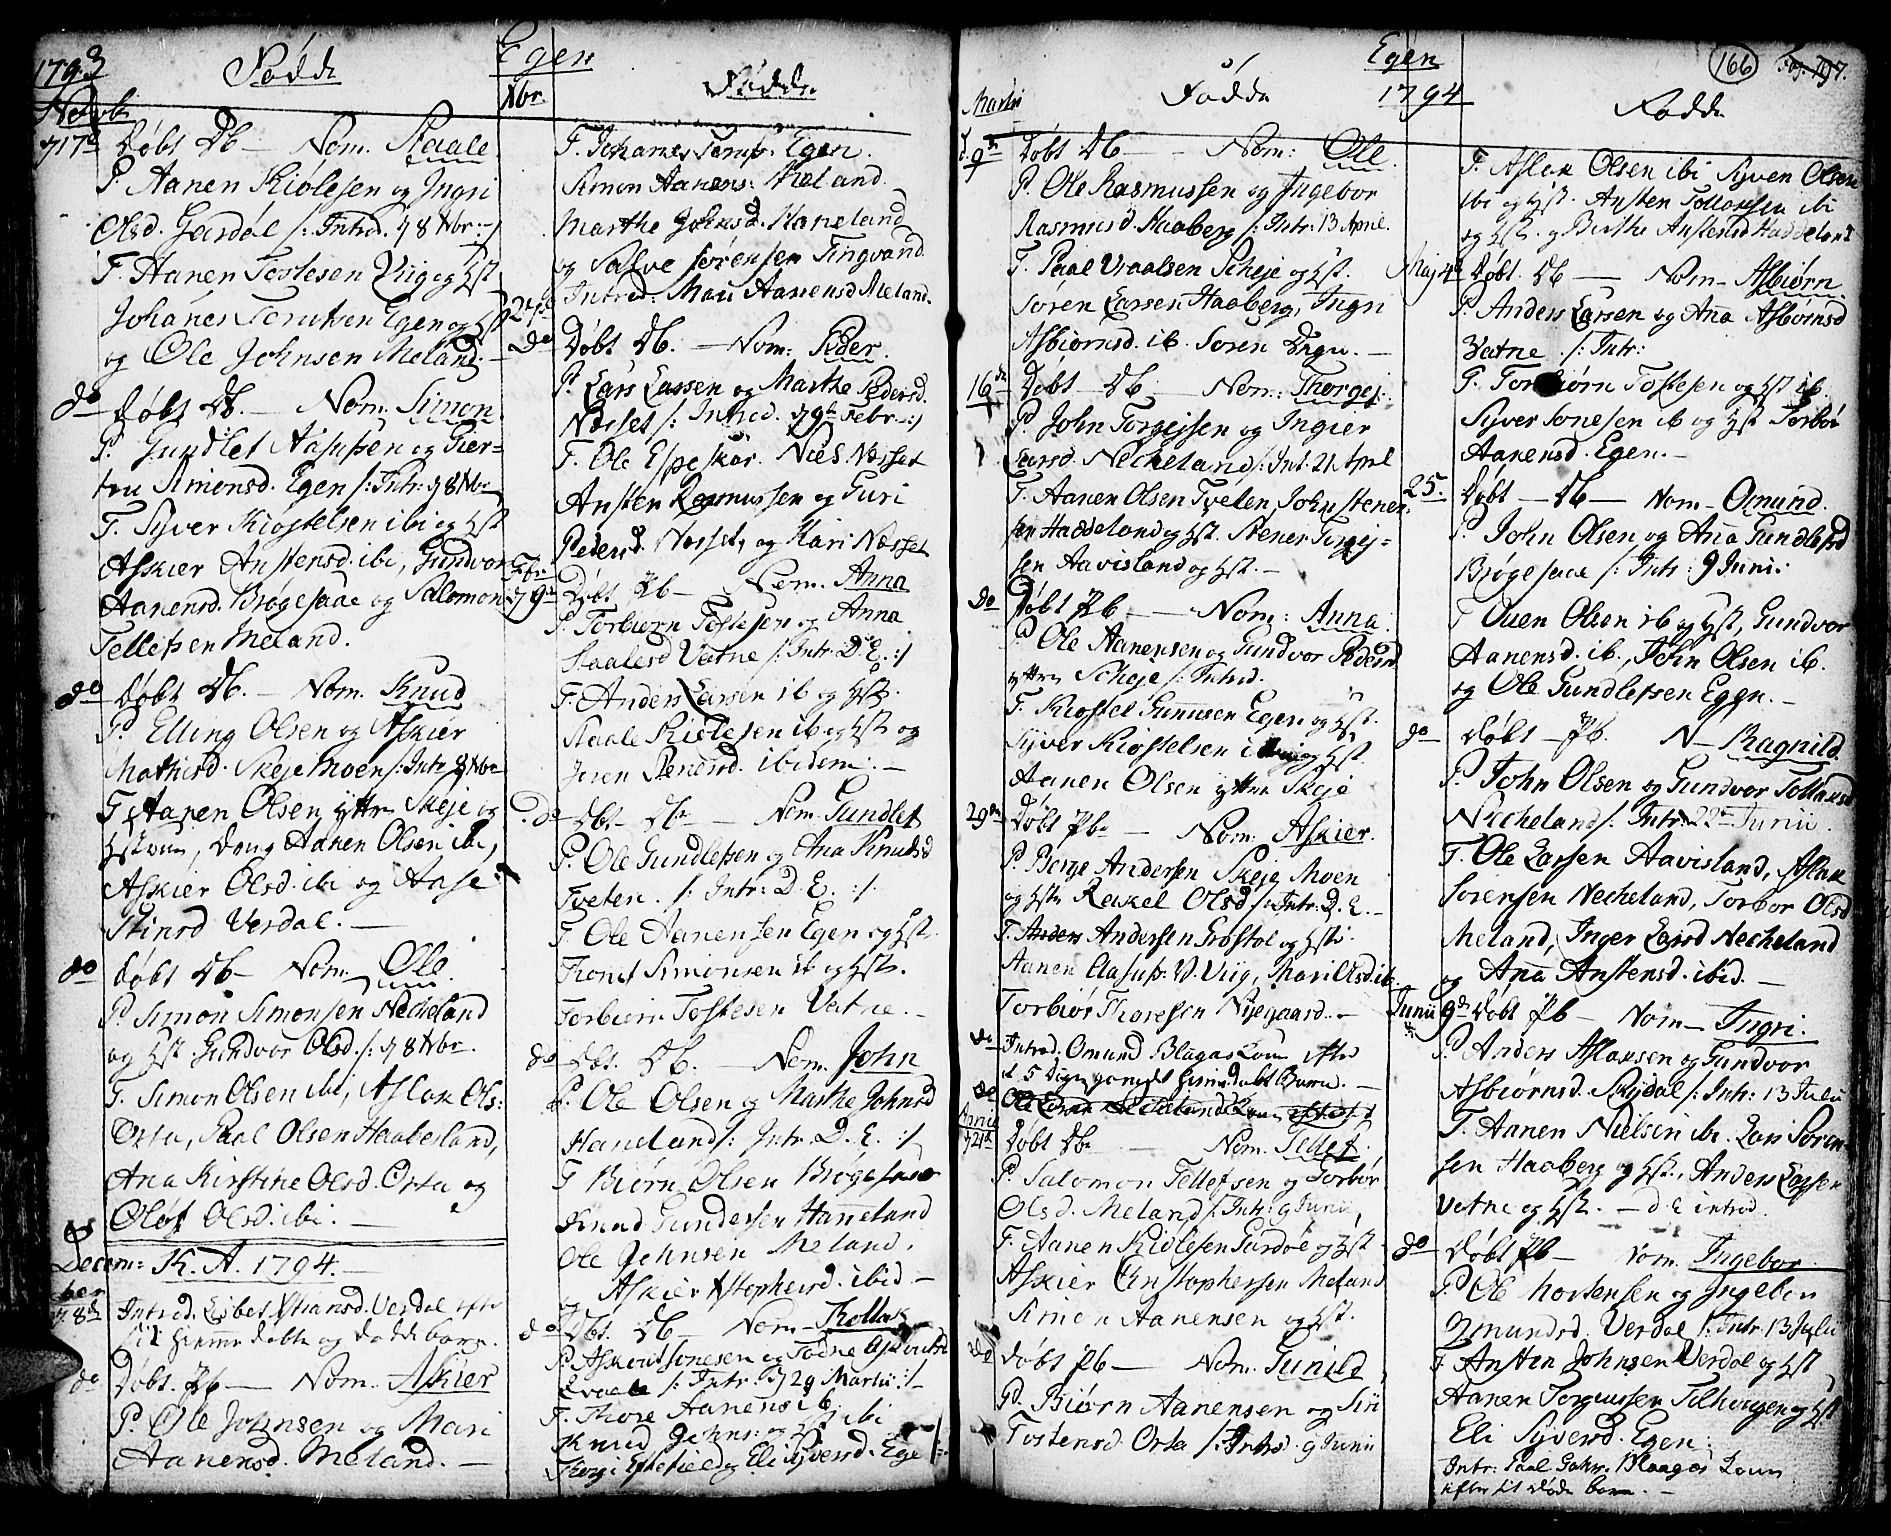 1793 Fødde Egen
Novbr
d 17d Døbt Db — Nom. Staale
P. Aanen Kiølesen og Ingri
Olsd. Gardøl /: Introd. d 8 Xbr :/
F. Aanen Tostesen Viig og Hst
Johanes Egen og Hst
og Ole Johnsen Meland. —
do Døbt Db. — Nom. Simon.
P. Gundlef og Gier=
tru Simonsd. Egen /: Intr: d 8 Xbr
F. Syver Kiøstelsen ibi og Hst
Askier Anstensd. ibi, Gundvor
Aanensd. Brøgesaae og Salomon
Tellefsen Meland.
do Døbt Db. — Nom. Knud
P. Elling Olsen og Askier
Mathisd. Skeje Moen /: Intr 8 Xbr
F. Aanen Olsen yttre Skeje og
Hstrue, Dreng Aanen Olsen ibi,
Askier Olsd. ibi og Aase
Verdal. —
do Døbt Db — Nom. Ole
P. Simon Simonsen Necheland
og Hst Gundvor Olsd. /: d 8 Xbr.
F. Simon Olsen ibi, Aslak Ols:
Orta, Paal Olsen Haabesland,
Ana Kirstine Olsd. Orta og
Oløf Olsd. ibi. —
K. A. 1794. —
December
d 8d Introd. Lisbet Verdal efter
sit hiemme døbte og døde barn.
do Døbt Pb — Nom. Askier
P. Ole Johnsen og Mari
Aanensd. Meland. —
Xbr. Fødde
F. Johanes Egen.
Simon Aanens: Meland.
Marthe Johnsd. Haneland
og Salve Sørensen Tingvand.
Introd: Mari Aanensd Meland.
do Døbt Db. — Nom: Peder.
P. Lars Larsen og Marthe Pedersd.
Nøsset /: Introd. d 9de Febr :/
F. Ole Espeskar. Nøsset
Ansten Rasmussen og Guri
Pedersd Nøsset, og Kari Nøsset
Febr
d 9de Døbt Pb — Nom. Anna
P. Torbiørn Tostesen og Anna
Staalesd Vatne /: Intr. D. E. :/
F. Anders Larsen ib og Hst.
Staale Kiølesen ib og Hst og
Joren Stenersd. ibidem. —
do Dbt. Db. — Nom. Gundlef
P. Ole Gundlefsen og Ana Knudsd
Tveten. /: Intr: D. E. :/
F. Ole Aanensen Egen og Hst.
Trond Simonsen ib og Hst.
Torbiørn Tostesen Vatne. —
do Dbt. Db. — Nom. John
P. Ole Olsen og Marthe Johnsd
Haneland /: Intr. D. E. :/
F. Biørn Olsen Brøgesaae
Knud Gundersen Haneland
Ole Johnsen Meland.
og Askier Xstophersd. ibid —
do Dbt. Db — Nom — Tollak
P. Askoutsonesen og Todne
/: Intr. d 29 Martii :/
F. Thore Aanens ib,
Knud Johns: og Hst ibi
og Eli Syversd. Ege
Egen 1794 166
Martii Fødde
d. 9de Døbt Db — Nom: Ole.
P. Ole Rasmussen og Ingebor
Rasmusd. Haaberg /: Intr: 13 April.
F. Paal Vraalsen Scheje og Hst.
Søren Larsen Haaberg, Ingri
Asbiørnsd. ib. Søren Degn. —
16de Døbt — Db — Nom: Thorgej.
P. John Torgejsen og Ingier
Larsd. Necheland /: Int. 21 April
F. Aanen Olsen Tveten, John Stener=
sen Haddeland og Hst. Stener Torgej=
sen Aavisland og Hst. —
do Døbt Pb — Nom: Anna
P. Ole Aanensen og Gundvor Pedersd
yttre Scheje /: Introd.
F. Kiøstel Gunnusen Egen og Hst.
Syver Kiøstelsen ibi og Hst.
Aanen Olsen yttre Skeje
29de Døbt Pb. — Nom: Askier.
P. Berge Andersen Skeje Moen
og Hst. Rakel Olsd /: Intr: D. E. —
F. Anders Andersen Grøstøl og Hst.
Aanen Viig, Mari Olsd. ib.
Torbiør Thoresen Nisegaard. —
do Introd. Omund Blagas Kone efter
et 5 Dage gammelt hiemdøbt Barn. —
do
Aprilis
d 21d Døbt Db — Nom. Tellef.
P. Salomon Tellefsen og Torbør
Olsd. Meland /: Intr: 9 Junii,
F. Aanen Kiølesen Gardøl og Hst
Askier Christophersen Meland
Simon Aanensen og Hst.
do Døbt Pb — Nom. Gunild
P. Biørn Aanensen og Siri
Tostensd. Orta /: Introd. 9 Junii
Fødde
F. Aslak Olsen ibi Syven Olsen
ibi og Hst. Ansten Tollaksen ibi
og Hst. og Birthe Anstensd Haddeland
Maj 4de Døbt. Db — Nom — Asbiørn
P. Anders Larsen og Ana Asbiørnsd
Vatne. /: Intr:
F. Torbiørn Tostesen og Hst ib.
Syver Sonesen ib og Hst Torbør
Aanensd. Egen. —
25. Døbt — Db — Nom — Omund.
P. John Olsen og Ana Gundlefsd
Brøgesaae /: Intr: 9 Junii
F. Ouen Olsen ib og Hst, Gundvor
Aanensd. ib., John Olsen ib.
og Ole Gundlefsen Egen. —
do Døbt — Pb. N — Ragnild
P. John Olsen og Gundvor Tollaksd
Necheland /: Intr: 22de Junii.
F. Ole Larsen Aavisland, Aslak
Sørensen Necheland, Torbor Olsd
Meland, Inger Larsd Necheland
og Ana Anstensd. ibid. —
Junii 9de Døbt Pb — Nom — Ingri.
P. Anders Aslaksen og Gundvor
Asbiørnsd. /: Intr: 13 Julii
F. Aanen Nielsen ibi. Lars Søren=
sen Haaberg og Hst., Anders Larsen
Vatne og Hst. — d. E introd.
do Døbt Pb — Nom. Ingebor
P. Ole Mortensen og Ingebor
Omundsd. Verdal /: Intr. 13 Julii
F. Ansten Johnsen Verdal og Hst
Aanen Torgiussen og Hst
Eli Syversd. Egen.
Intr: Paal Blaagas Kone
efter sit Døde barn. —